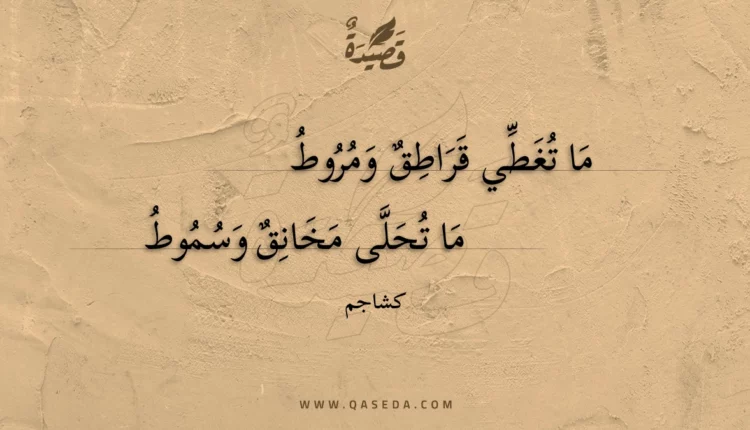 قَصِيْدَةٌ
مَا تُغَطِّي قَرَاطِقٌ وَمُرُوطُ
مَا تُحَلَّى مَخَانِقٌ وَسُمُوطُ
كشاجم
WWW.QASEDA.COM